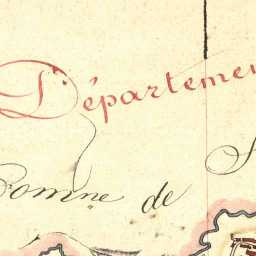 Départemen
Comne de S